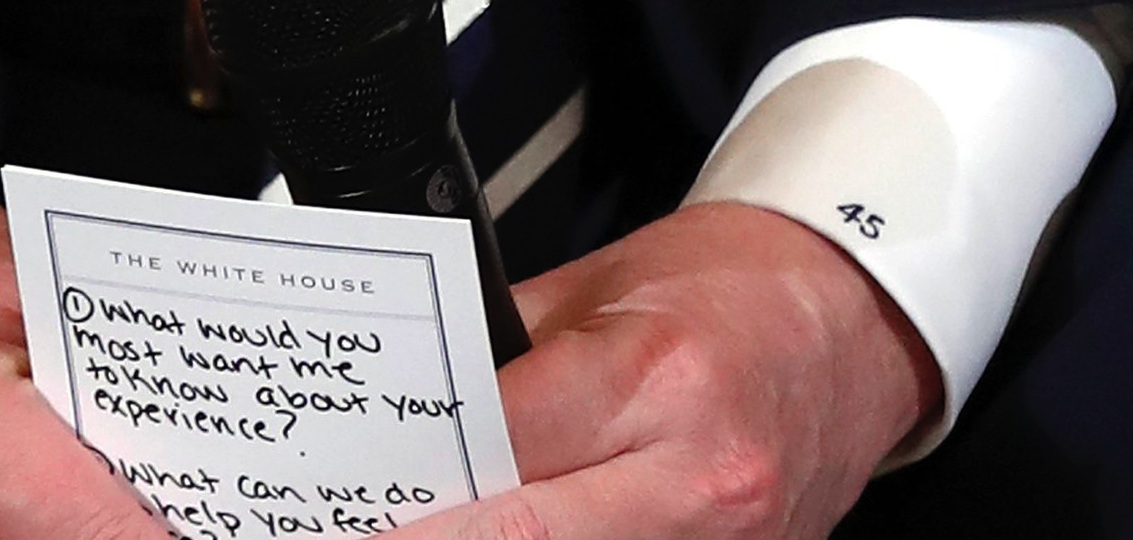 THE WHITE HOUSE
① What would you
most want me
to know about your
experience?
What can we do
help you feel
45